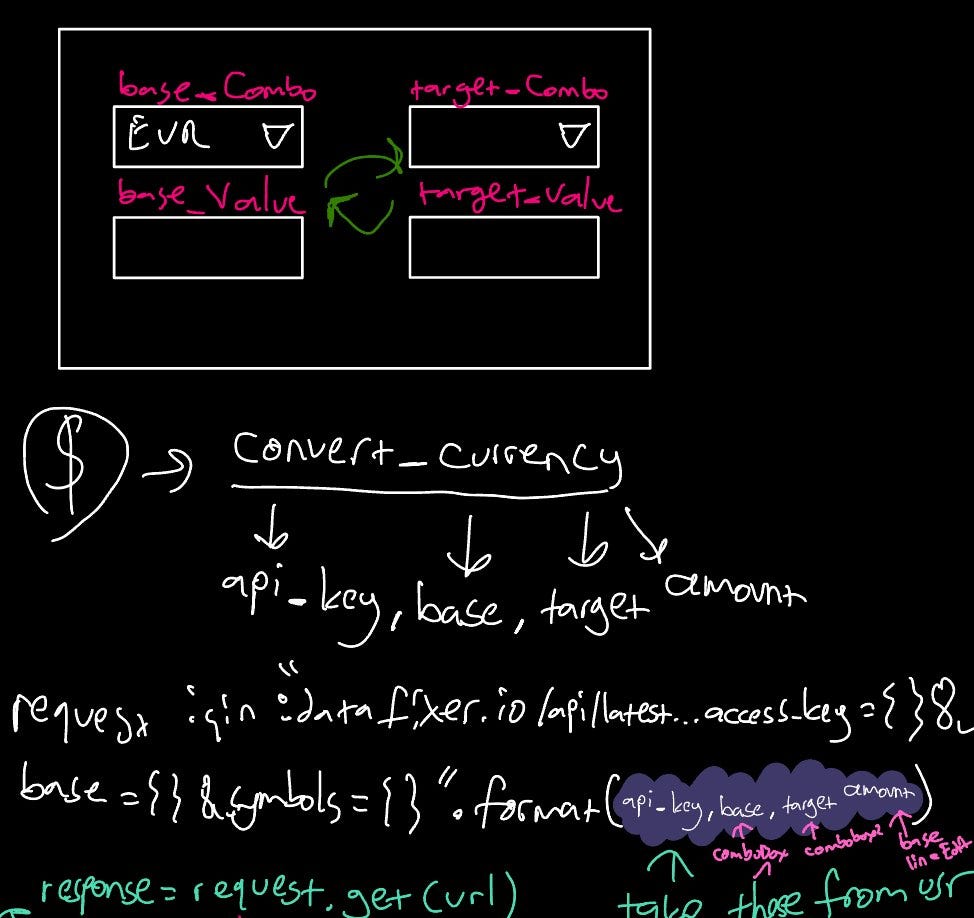 base_Combo target_Combo
EUR
base_Value target_value
$ → convert_currency
api_key, base, target amount
request için "data.fixer.io/api/latest...access_key={}&
base={}&symbols={}".format(api_key, base, target amount)
combobox combobox2 base
line Edit
response = request.get(url) take those from usr